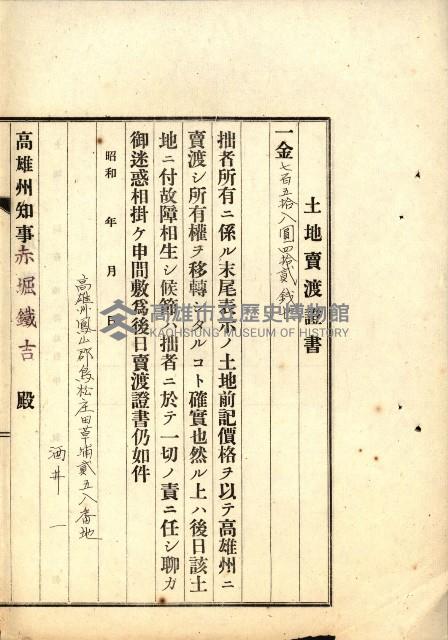 土地賣渡證書
一金七百五拾八圓四拾貳錢
拙者所有ニ係ル末尾表示ノ土地前記價格ヲ以テ高雄州ニ
賣渡シ所有權ヲ移轉シタルコト確實也然ル上ハ後日該土
地ニ付故障相生シ候節ハ拙者ニ於テ一切ノ責ニ任シ聊カ
御迷惑相掛ケ申間敷爲後日賣渡證書仍如件
昭和 年 月 日
高雄州鳳山郡鳥松庄田草埔貳五八番地
酒井 一
高雄州知事赤堀鐵吉 殿
高雄市立歷史博物館
KAOHSIUNG MUSEUM OF HISTORY